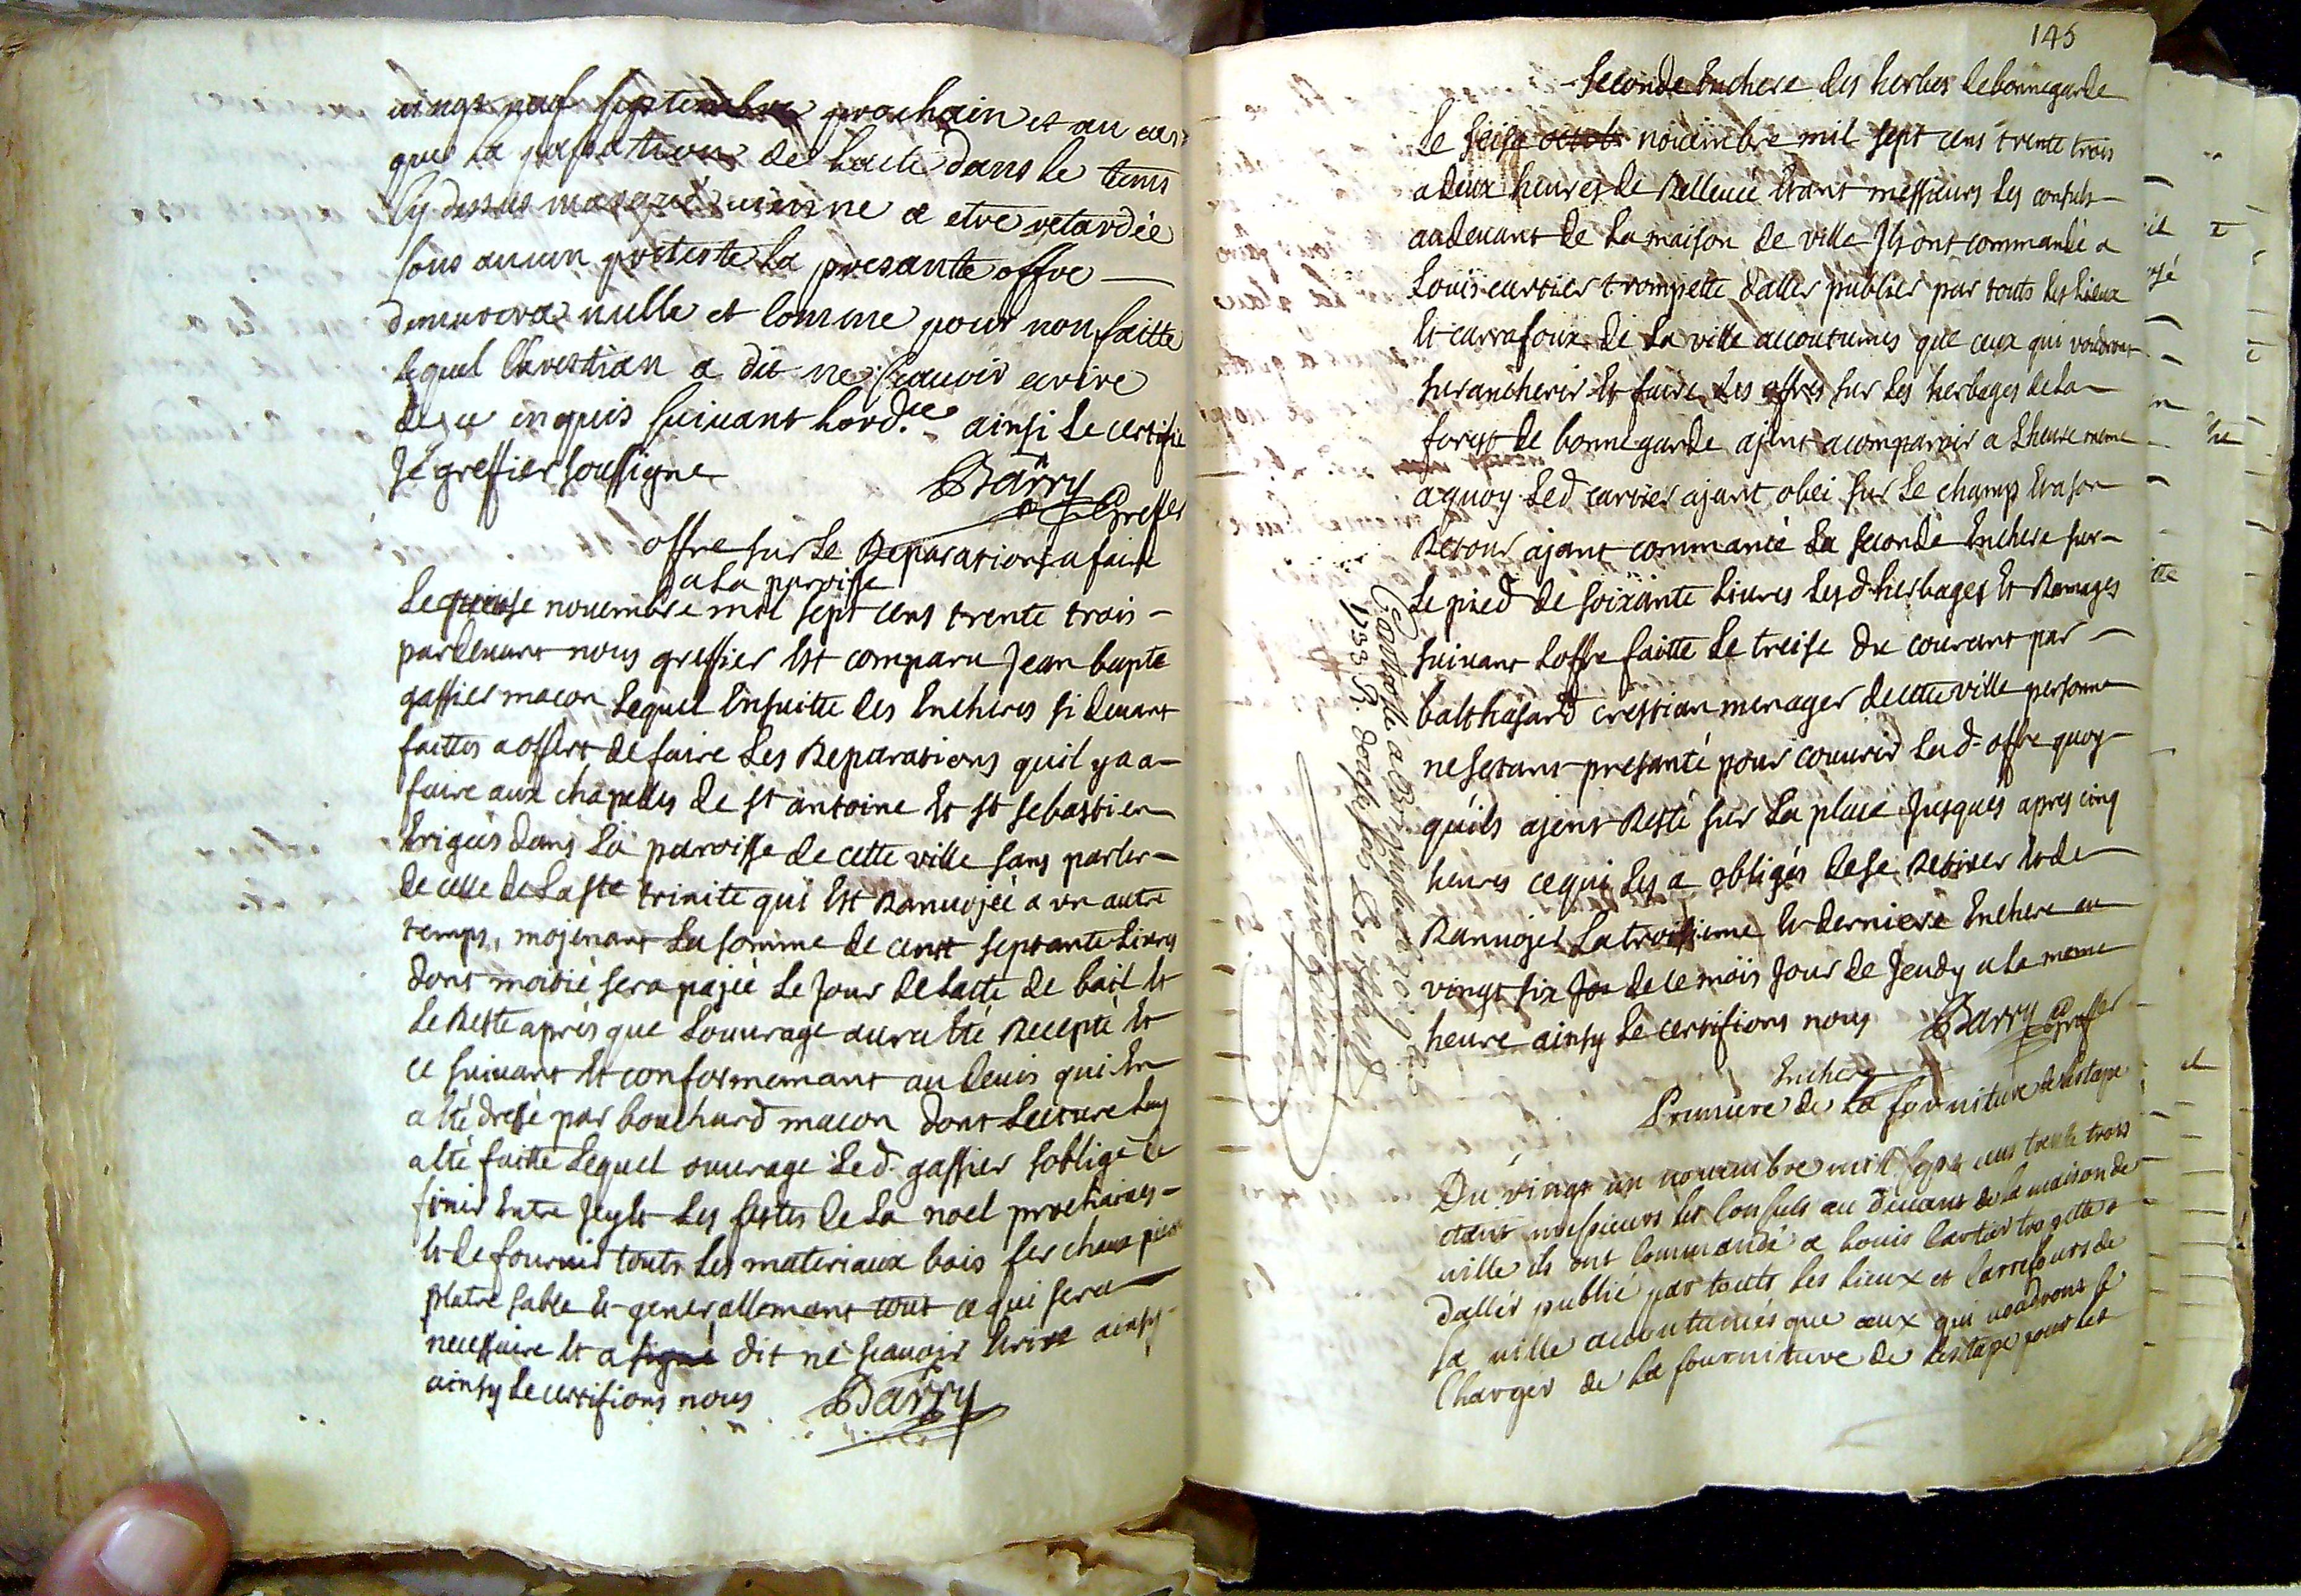 vingt neuf septembre prochain et au cas
que la passation de lacte dans le tems
Cy dessus marqué vienne a etre retardée
sous aucun preteste La presante offre
demeurera nulle et comme pour non faitte
Lequel Chrestian a dit ne scauoir ecrire
de ce enquis suiuant Lord.ce ainsi Le certifie
Je greffier soussigne Barry
Greffier
offre sur Le Reparations a faire
a La paroisse
Le quinse nouembre mil sept cens trente trois
pardeuant nous greffier Est comparu Jean bapte
gassier macon Lequel Ensuitte des Encheres si deuant
faittes a offert de faire Les Reparations quil y a a
faire aux chapelles de st antoine Et st sebastien
Erigées dans La paroisse de cette ville sans parler
de celle de La ste trinite qui Est Ranuojée a vn autre
temps, mojenant La somme de cent septante Liures
dont moitié sera pajée Le Jour de Lacte de bail Et
Le Reste aprés que Louurage aura Eté Recepté Et
ce suiuant Et conformemant au deuis qui En
a Eté dressé par bouchard macon dont Lecture Luy
a Eté faitte Lequel ouurage Led. gassier soblige de
finir Entre Jcy Et Les festes de La noel prochaines
Et de fournir touts Les materiaux bois fer chaux pierre
platre sable Et generallemant tout ce qui sera
necessaire Et a signé dit ne scauoir Ecrire ainsy
ainsy Le certifions nous Barry
145
Seconde Enchere des herbes de bonnegarde
Le seise octob nouembre mil sept cens trente trois
a deux heures de Relleuée Etant messieurs Les consuls
audeuant de La maison de ville Jls ont commandé a
Louis cartier trompette daller publier par touts Les Lieux
Et carrafoux de La ville accoutumes que ceux qui voudront
surancherir Et faire Les offres sur Les herbages de La
forest de bonnegarde ajent a comparoir a Lheure meme
a quoy Led cartier ajant obei sur Le champ Et a son
Retour ajant commancé La seconde Enchere sur
Le pied de soixante Liures Lesd herbages Et Ramages
suiuant Loffre faitte Le treise du courant par
balthasard crestian menager de cette ville personne
ne setant presanté pour couurir Lad. offre quoy
quils ajent Resté sur La place Jusques apres cinq
heures ce qui Les a obligés de se Retirer Et de
Ranuojer La troisieme Et derniere Enchere au
vingt six Jou de ce mois Jour de Jeudy a La meme
heure ainsy Le certifions nous Barry Greffier
Enchere
Premiere de La fourniture de lestape
Du vingt un nouembre mil sept cens trente trois
etant messieurs les Consuls au deuant de la maison de
ville ils ont Commandé a Louis Cartier trompette
daller publié par touts les lieux et Carrefours de
la ville acoutumés que ceux qui voudront se
Charger de La fourniture de lestape pour les